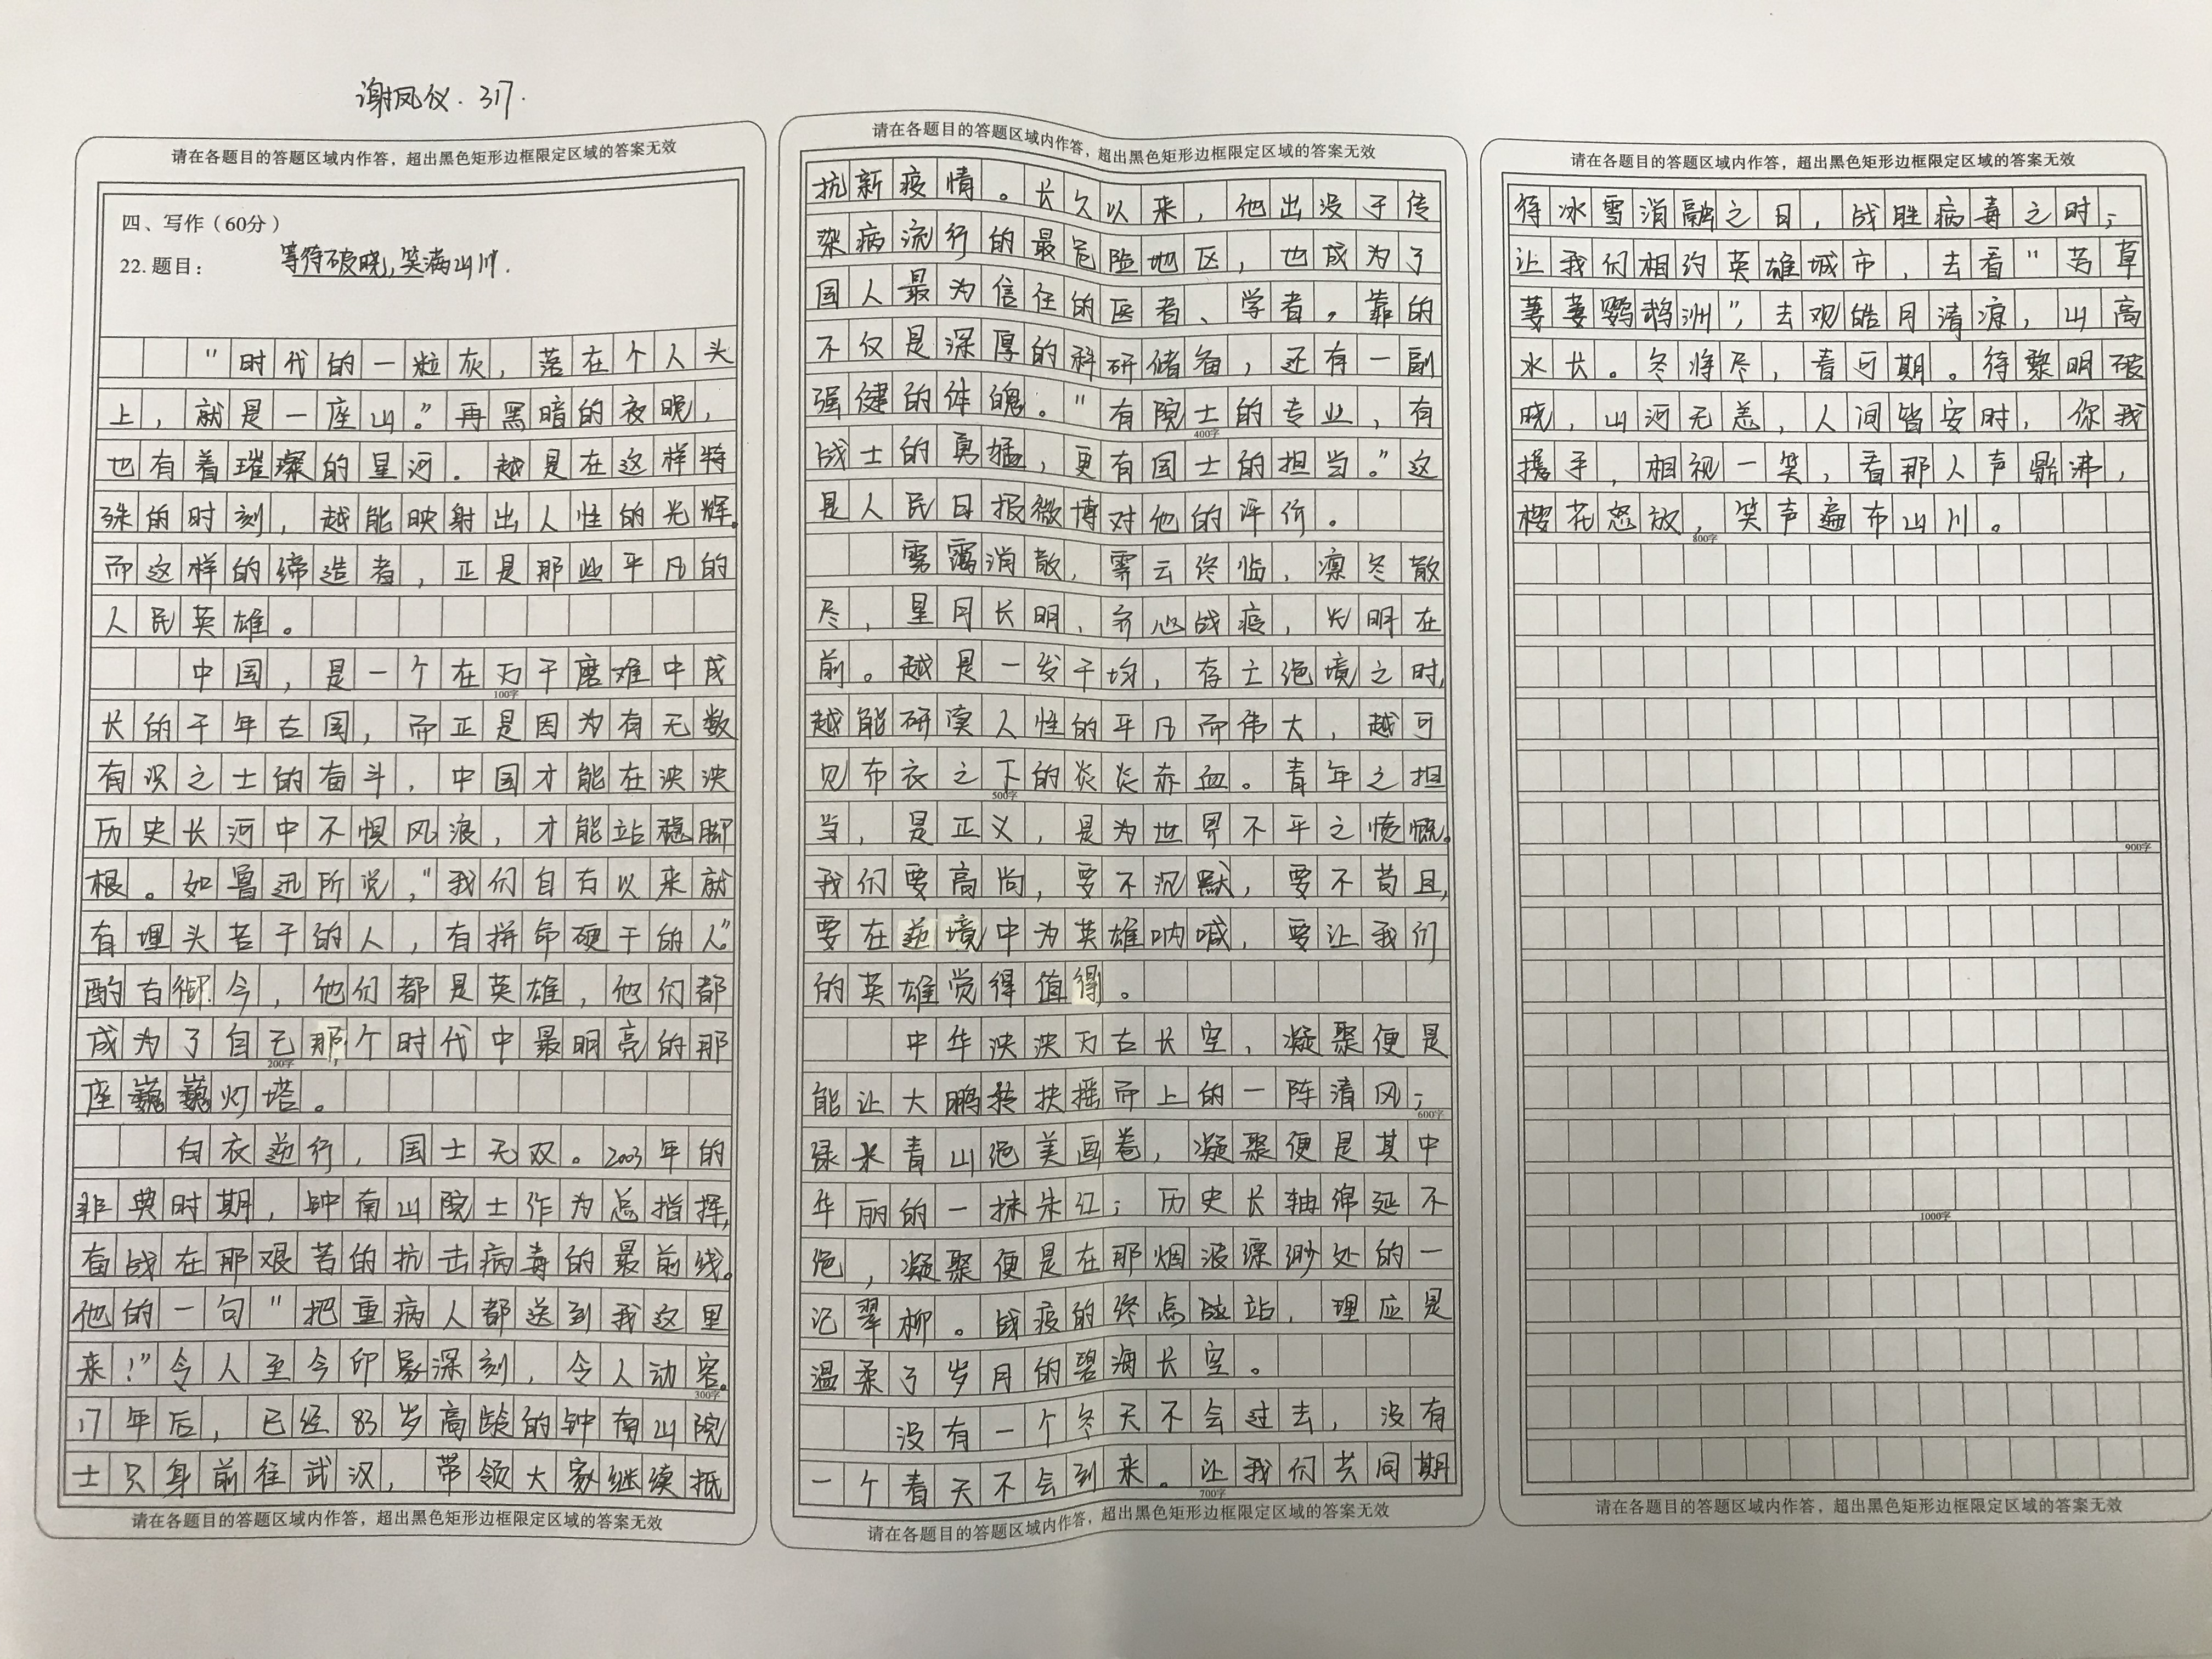 谢凤仪. 317.
请在各题目的答题区域内作答，超出黑色矩形边框限定区域的答案无效
四、写作（60分）
22.题目： 等待破晓，笑满山川.
“时代的一粒灰，落在个人头
上，就是一座山。”再黑暗的夜晚，
也有着璀璨的星河。越是在这样特
殊的时刻，越能映射出人性的光辉。
而这样的缔造者，正是那些平凡的
人民英雄。
中国，是一个在万千磨难中成
100字
长的千年古国，而正是因为有无数
有识之士的奋斗，中国才能在泱泱
历史长河中不惧风浪，才能站稳脚
根。如鲁迅所说，“我们自古以来就
有埋头苦干的人，有拼命硬干的人”
酌古御今，他们都是英雄，他们都
成为了自己那个时代中最明亮的那
200字
座巍巍灯塔。
白衣逆行，国士无双。2003年的
非典时期，钟南山院士作为总指挥，
奋战在那艰苦的抗击病毒的最前线。
他的一句“把重病人都送到我这里
来！”令人至今印象深刻，令人动容。
300字
17年后，已经83岁高龄的钟南山院
士只身前往武汉，带领大家继续抵
请在各题目的答题区域内作答，超出黑色矩形边框限定区域的答案无效
请在各题目的答题区域内作答，超出黑色矩形边框限定区域的答案无效
抗新疫情。长久以来，他出没于传
染病流行的最危险地区，也成为了
国人最为信任的医者、学者。靠的
不仅是深厚的科研储备，还有一副
强健的体魄。“有院士的专业，有
400字
战士的勇猛，更有国士的担当。”这
是人民日报微博对他的评价。
雾霭消散，霁云终临，凛冬散
尽，星月长明，齐心战疫，光明在
前。越是一发千均，存亡绝境之时，
越能研读人性的平凡而伟大，越可
见布衣之下的炎炎赤血。青年之担
500字
当，是正义，是为世界不平之愤慨。
我们要高尚，要不沉默，要不苟且，
要在逆境中为英雄呐喊，要让我们
的英雄觉得值得。
中华泱泱万古长空，凝聚便是
能让大鹏扶摇而上的一阵清风；
600字
绿水青山绝美画卷，凝聚便是其中
华丽的一抹朱红；历史长轴绵延不
绝，凝聚便是在那烟波缥缈处的一
记翠柳。战疫的终点站，理应是
温柔了岁月的碧海长空。
没有一个冬天不会过去，没有
一个春天不会到来。让我们共同期
700字
请在各题目的答题区域内作答，超出黑色矩形边框限定区域的答案无效
请在各题目的答题区域内作答，超出黑色矩形边框限定区域的答案无效
待冰雪消融之日，战胜病毒之时；
让我们相约英雄城市，去看“芳草
萋萋鹦鹉洲”，去观皓月清凉，山高
水长。冬将尽，春可期。待黎明破
晓，山河无恙，人间皆安时，你我
携手，相视一笑，看那人声鼎沸，
樱花怒放，笑声遍布山川。
800字
900字
1000字
请在各题目的答题区域内作答，超出黑色矩形边框限定区域的答案无效